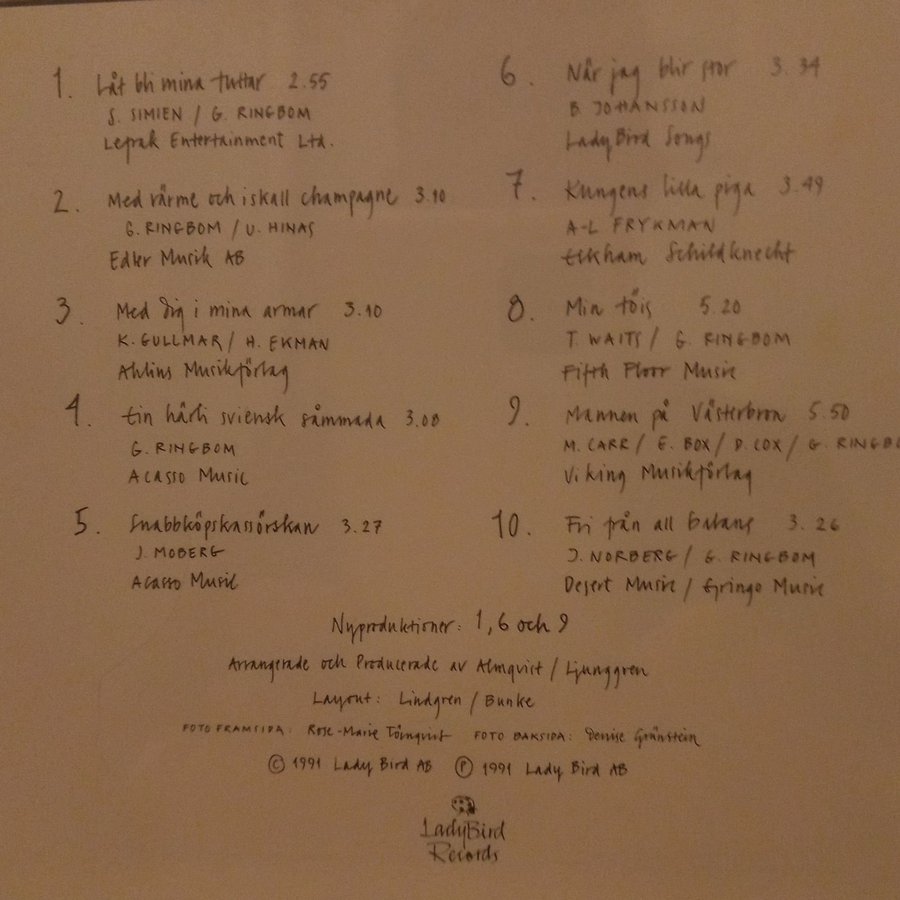 1. Låt bli mina tuttar 2.55
S. SIMIEN / G. RINGBOM
Lefrak Entertainment Ltd.
2. Med värme och iskall champagne 3.10
G. RINGBOM / U. HINAS
Edler Musik AB
3. Med dig i mina armar 3.10
K. GULLMAR / H. EKMAN
Ahlins Musikförlag
4. Ein härli sviensk sämmada 3.08
G. RINGBOM
Acasso Music
5. Snabbköpskassörskan 3.27
J. MOBERG
Acasso Music
6. När jag blir stor 3.34
B. JOHANSSON
LadyBird Songs
7. Kungens lilla piga 3.49
A-L FRYKMAN
Elkham Schildknecht
8. Min töis 5.20
T. WAITS / G. RINGBOM
Fifth Floor Music
9. Mannen på Västerbron 5.50
M. CARR / E. BOX / D. COX / G. RINGBO
Viking Musikförlag
10. Fri från all balans 3.26
J. NORBERG / G. RINGBOM
Desert Music / Gringo Music
Nyproduktioner: 1, 6 och 9
Arrangerade och Producerade av Almqvist / Ljunggren
Layout: Lindgren / Bunke
FOTO FRAMSIDA: Rose-Marie Törnqvist FOTO BAKSIDA: Denise Grünstein
© 1991 Lady Bird AB ℗ 1991 Lady Bird AB
LadyBird
Records